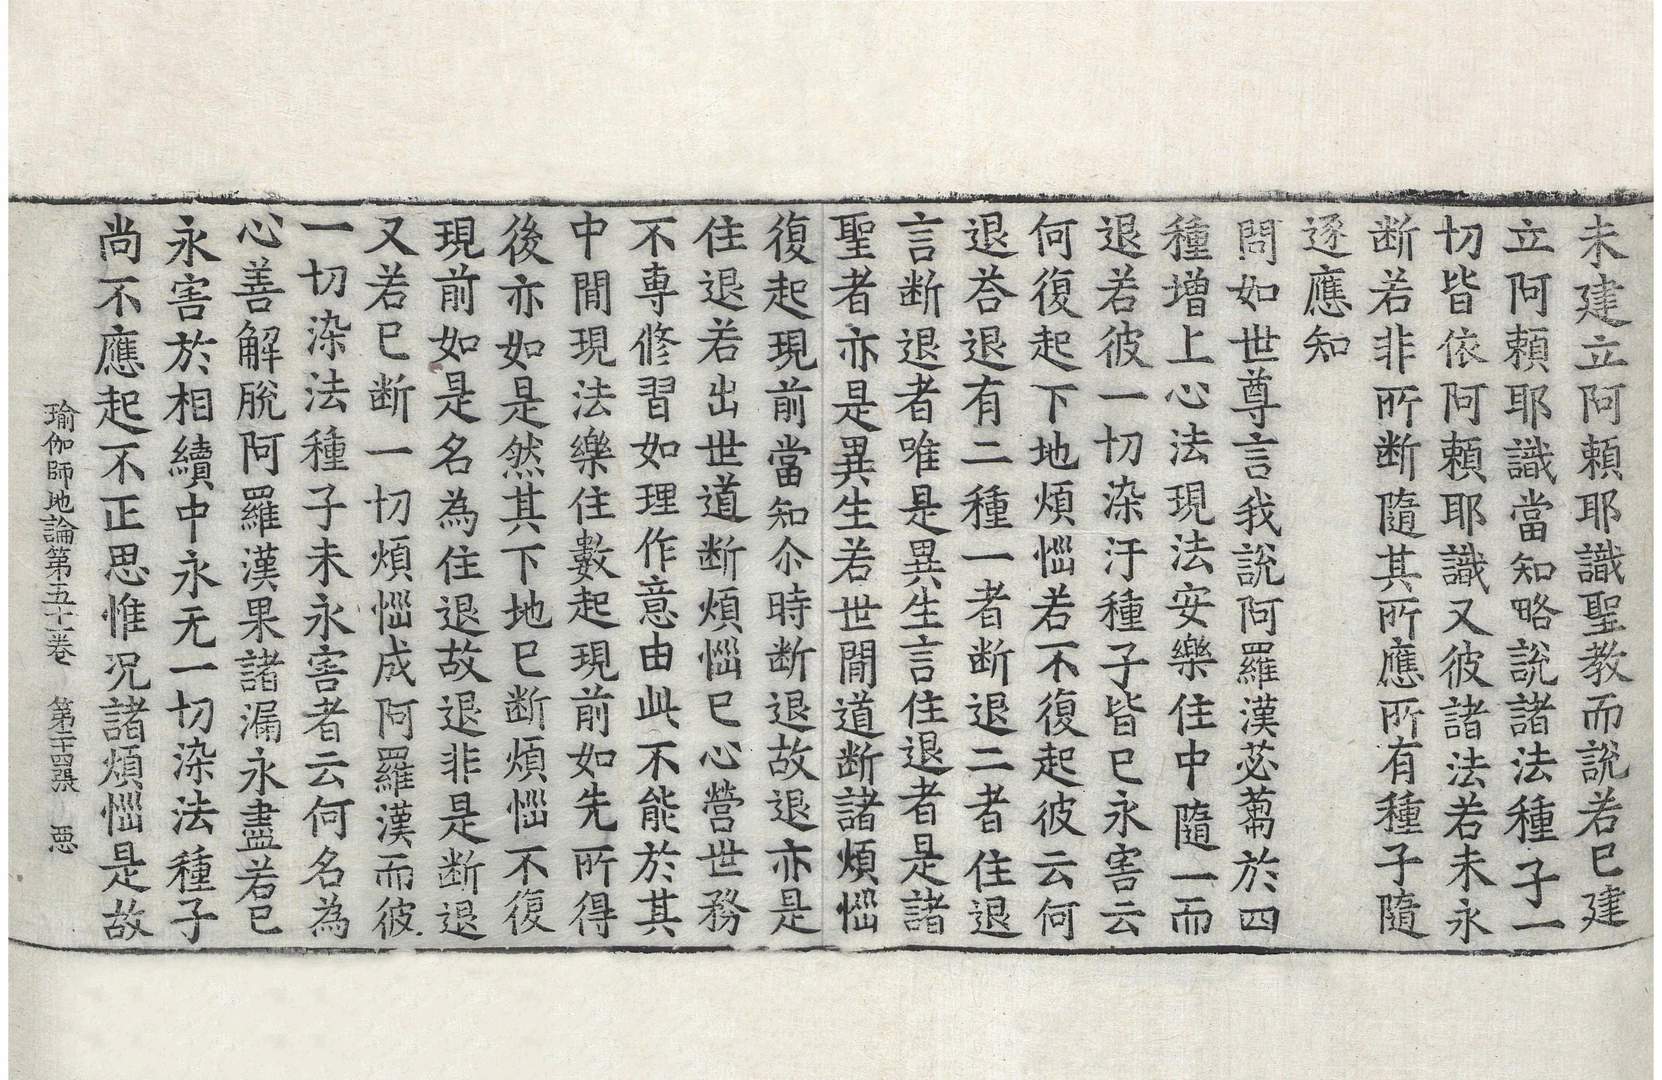 未建立阿頼耶識聖教而說若已建
立阿頼耶識當知略說諸法種子一
切皆依阿頼耶識又彼諸法若未永
断若非所断隨其所應所有種子隨
逐應知
問如世尊言我說阿羅漢苾蒭於四
種增上心法現法安樂住中隨一而
退若彼一切染汙種子皆已永害云
何復起下地煩惱若不復起彼云何
退荅退有二種一者断退二者住退
言断退者唯是異生言住退者是諸
聖者亦是異生若世間道断諸煩惱
復起現前當知尒時断退故退亦是
住退若出世道断煩惱已心營世務
不專修習如理作意由此不能於其
中間現法樂住數起現前如先所得
後亦如是然其下地已断煩惱不復
現前如是名為住退故退非是断退
又若已断一切煩惱成阿羅漢而彼
一切染法種子未永害者云何名為
心善解脫阿羅漢果諸漏永盡若已
永害於相續中永无一切染法種子
尚不應起不正思惟况諸煩惱是故
瑜伽師地論第五十一卷 第二十四張 惡